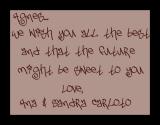 Agnes,
we wish you all the best
and that the future
might be sweet to you
Love,
Ana & Sandra Carloto